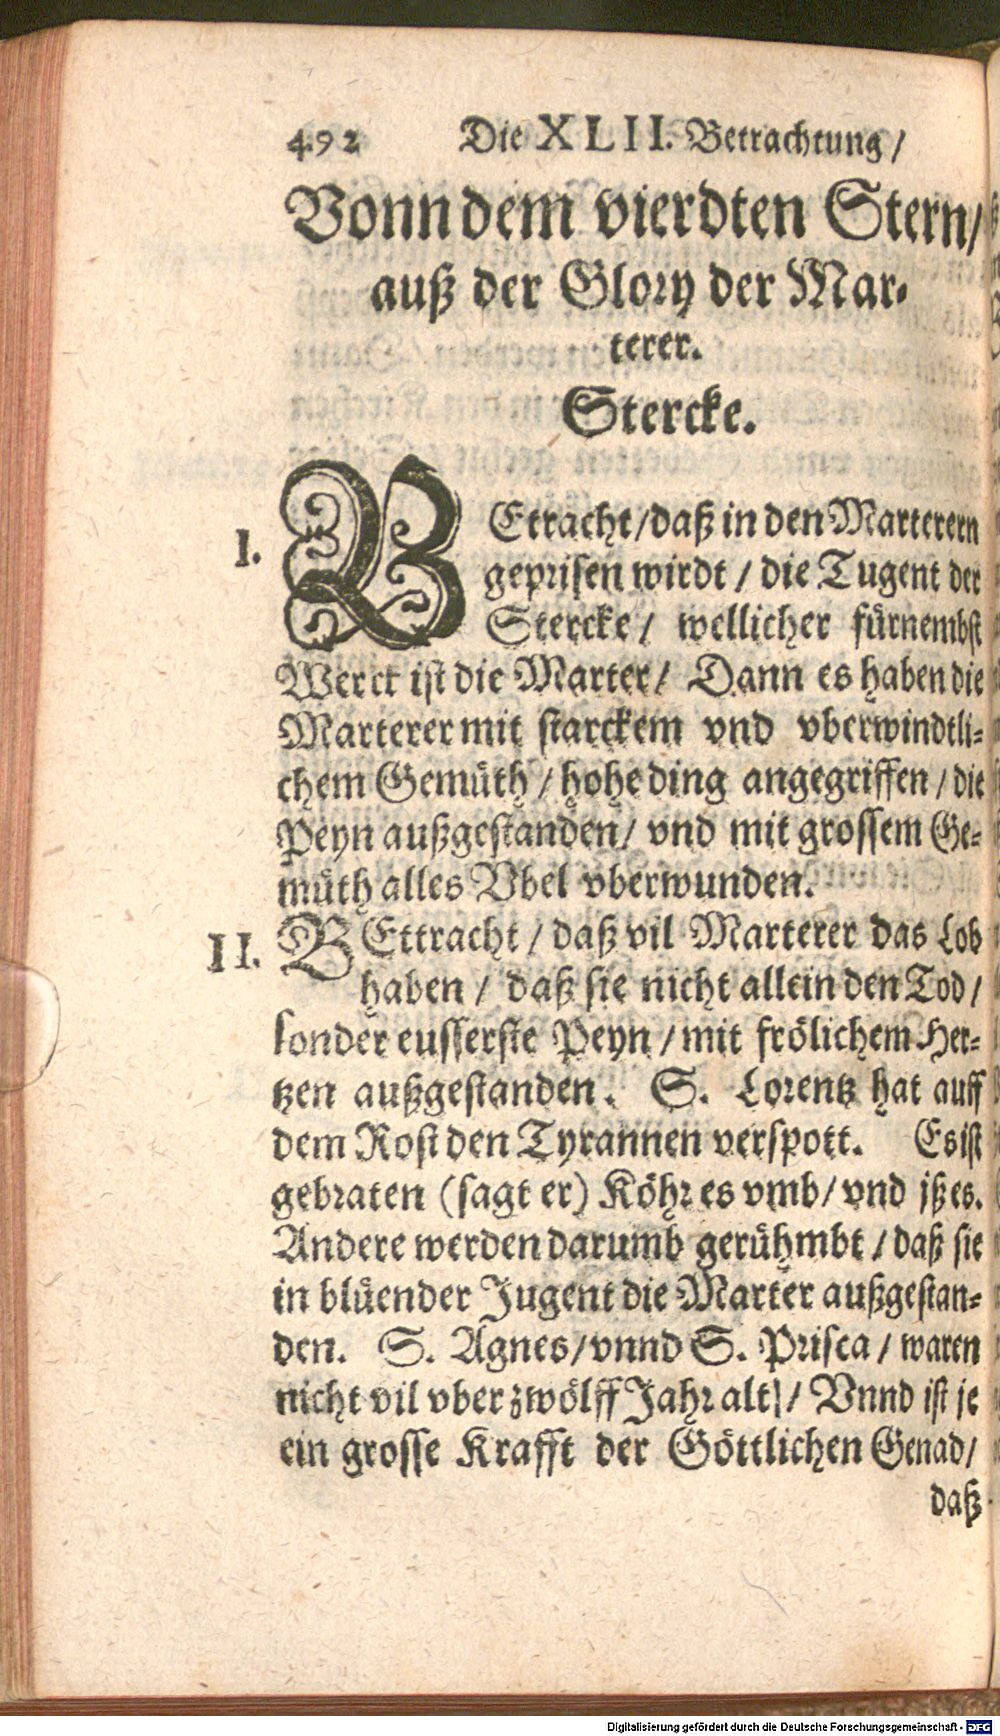 492 Die XLII. Betrachtung /
Vonn dem vierdten Stern /
auß der Glory der Mar-
terer.
Stercke.
I. BEtracht / daß in den Marterern
geprisen wirdt / die Tugent der
Stercke / wellicher fürnembst
Werck ist die Marter / Dann es haben die
Marterer mit starckem vnd vberwindtli-
chem Gemüth / hohe ding angegriffen / die
Peyn außgestanden / vnd mit grossem Ge-
müth alles Vbel vberwunden.
II. BEttracht / daß vil Marterer das Lob
haben / daß sie nicht allein den Tod /
sonder eusserste Peyn / mit frölichem Her-
tzen außgestanden. S. Lorentz hat auff
dem Rost den Tyrannen verspott. Es ist
gebraten (sagt er) Köhr es vmb / vnd jß es.
Andere werden darumb gerühmbt / daß sie
in blüender Jugent die Marter außgestan-
den. S. Agnes / vnnd S. Prisca / waren
nicht vil vber zwölff Jahr alt / Vnnd ist je
ein grosse Krafft der Göttlichen Genad /
daß
Digitalisierung gefördert durch die Deutsche Forschungsgemeinschaft - DFG